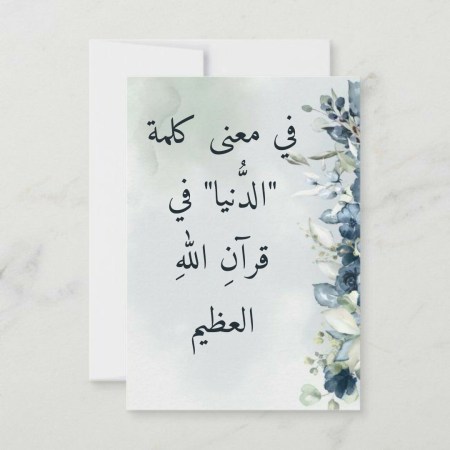 في معنى كلمة
"الدُّنيا" في
قرآنِ اللهِ
العظيم